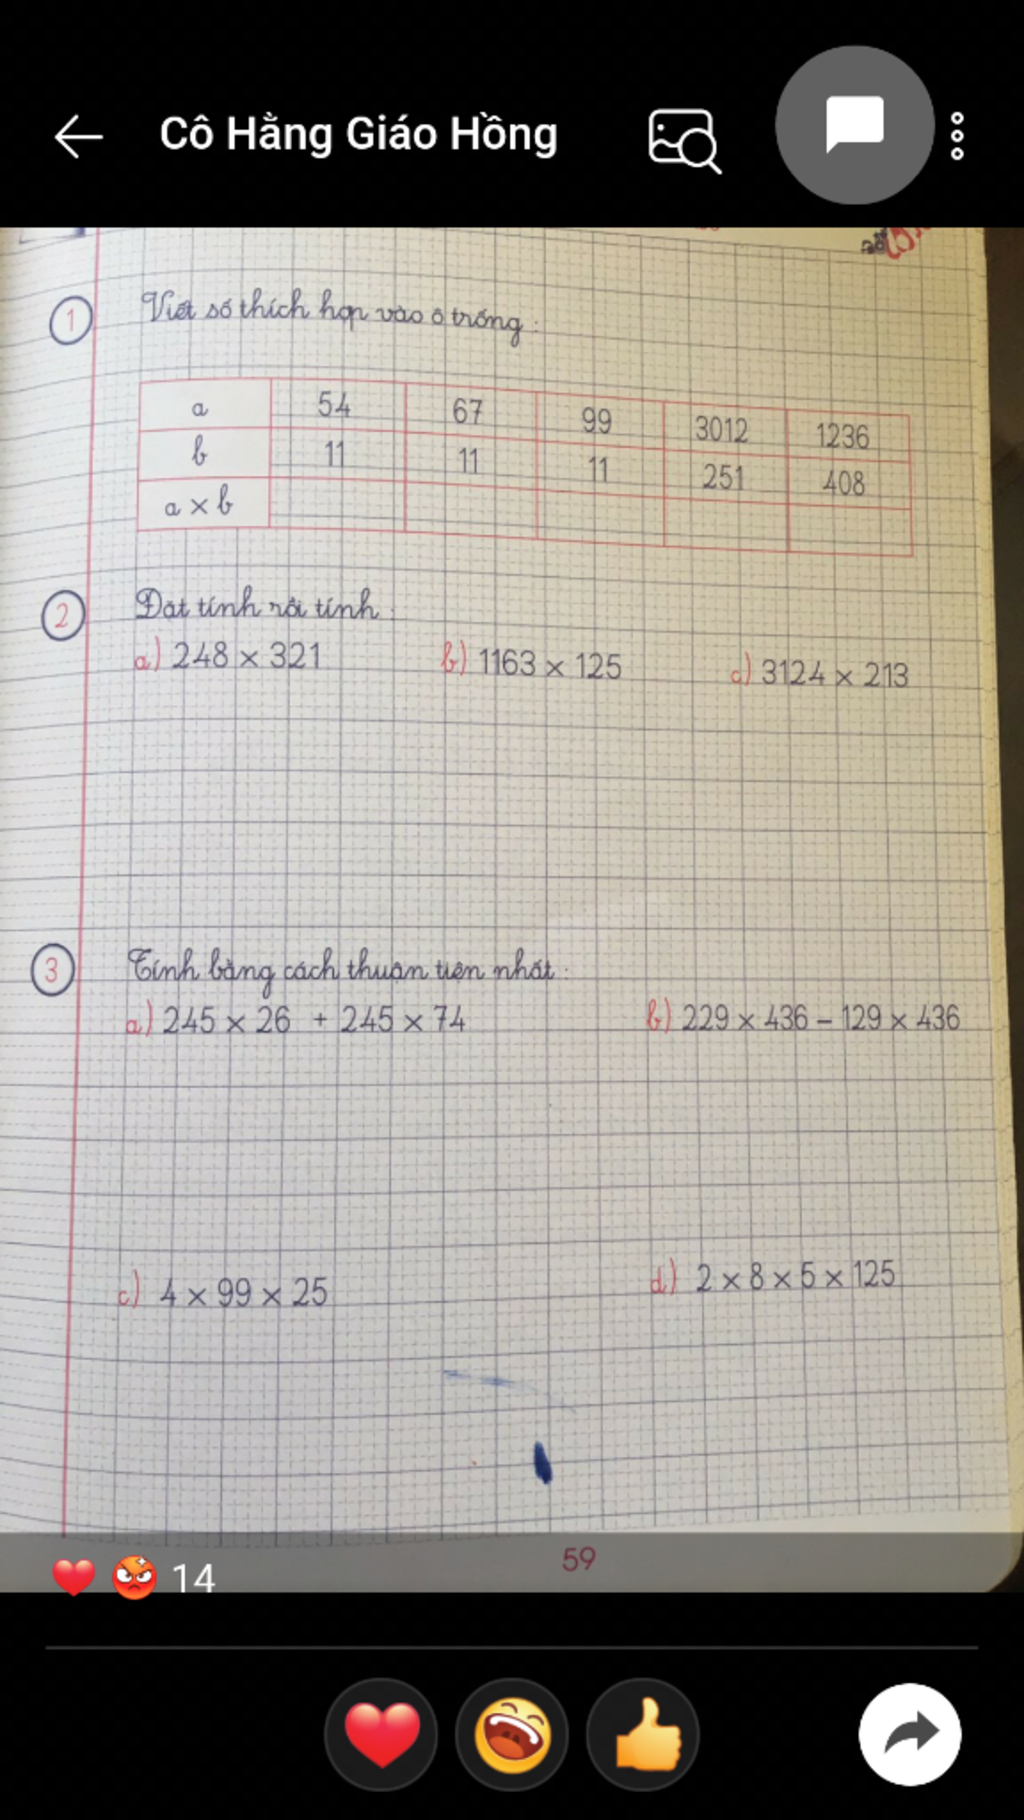 Cô Hằng Giáo Hồng
1 Viết số thích hợp vào ô trống :
a 54 67 99 3012 1236
b 11 11 11 251 408
a × b
2 Đặt tính rồi tính :
a) 248 × 321 b) 1163 × 125 c) 3124 × 213
3 Tính bằng cách thuận tiện nhất :
a) 245 × 26 + 245 × 74 b) 229 × 436 – 129 × 436
c) 4 × 99 × 25 d) 2 × 8 × 5 × 125
59
14